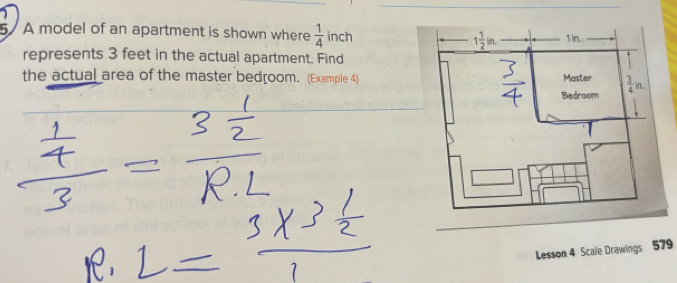 5. A model of an apartment is shown where 1/4 inch
represents 3 feet in the actual apartment. Find
the actual area of the master bedroom. (Example 4)
1 1/2 in.
1 in.
3/4
Master
Bedroom
3/4 in.
1
1/4 / 3 = 3 1/2 / R.L
R.L = 3 x 3 1/2 / 1
Lesson 4 Scale Drawings 579